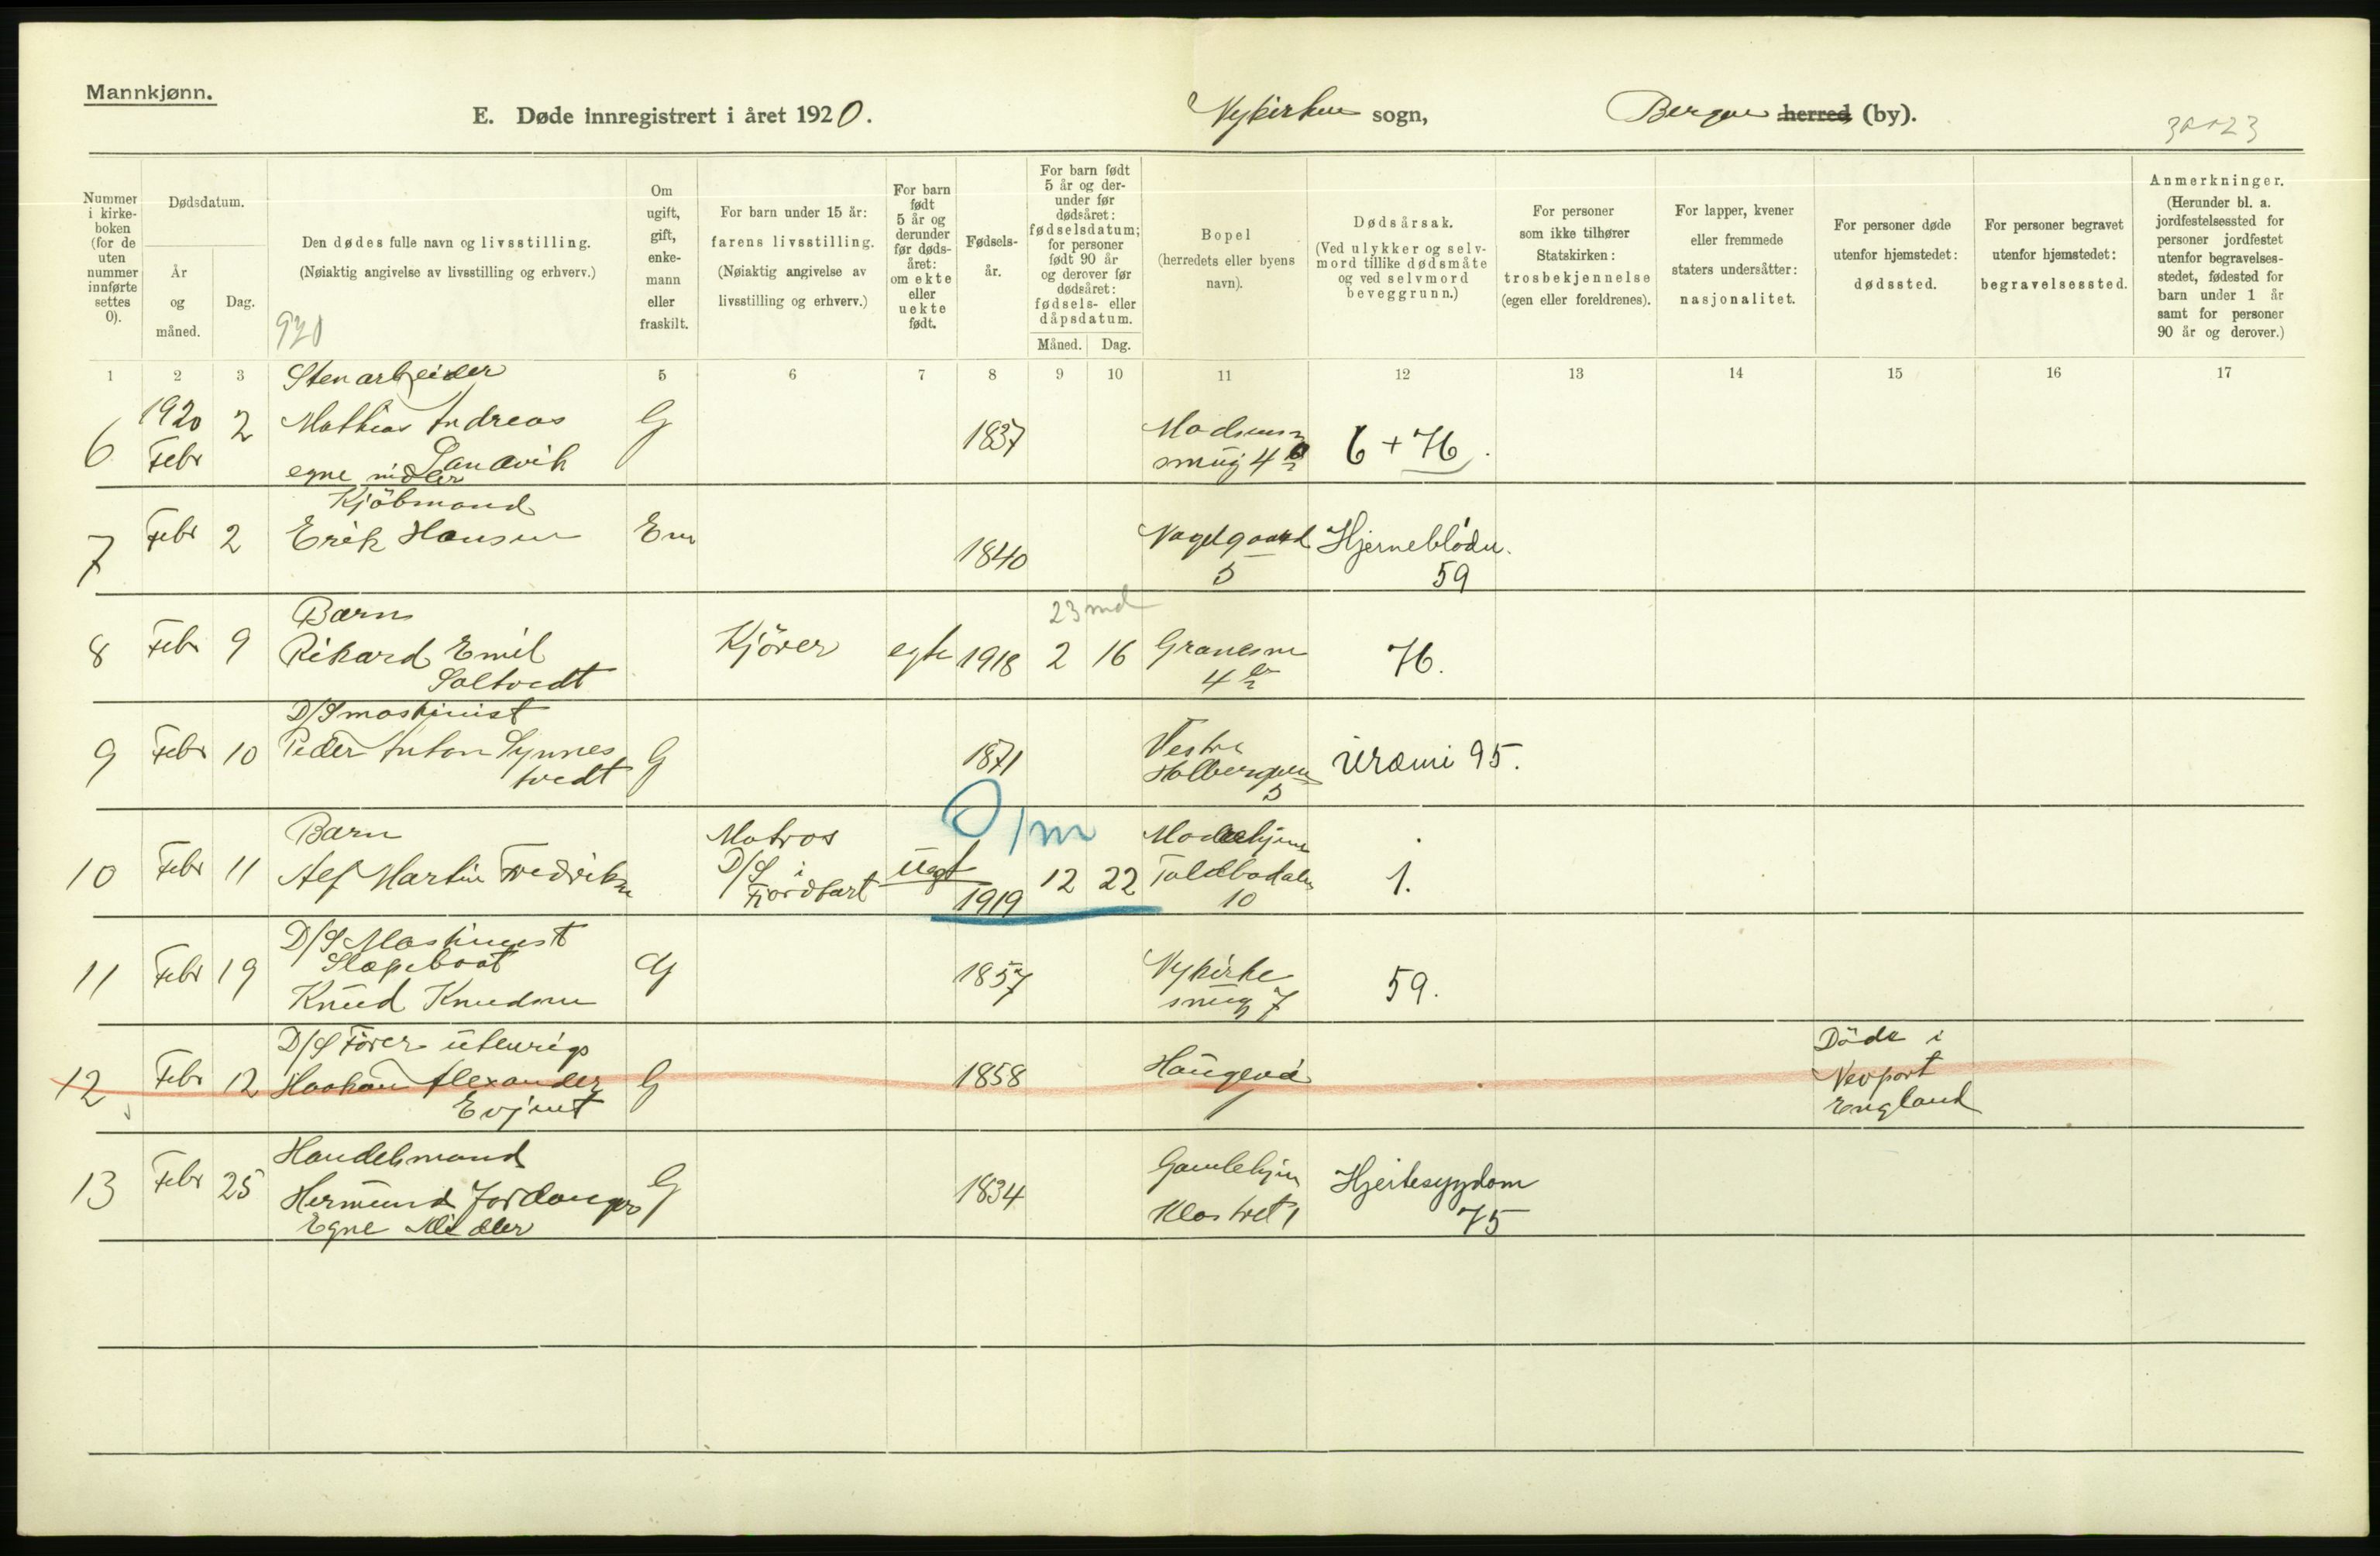 Mannkjønn.
E. Døde innregistrert i året 1920. Nykirken sogn, Bergen herred (by).
Nummer i kirke-boken (for de uten nummer innførte settes 0).
Dødsdatum.
År og måned.
Dag.
Den dødes fulle navn og livsstilling.
(Nøiaktig angivelse av livsstilling og erhverv.)
Om ugift, gift, enke-mann eller fraskilt.
For barn under 15 år: farens livsstilling.
(Nøiaktig angivelse av livsstilling og erhverv.)
For barn født 5 år og derunder før døds-året: om ekte eller uekte født.
Fødsels-år.
For barn født 5 år og der-under før dødsåret: fødselsdatum; for personer født 90 år og derover før dødsåret: fødsels- eller dåpsdatum.
Måned. Dag.
Bopel (herredets eller byens navn).
Dødsårsak.
(Ved ulykker og selv-mord tillike dødsmåte og ved selvmord beveggrunn.)
For personer som ikke tilhører Statskirken: trosbekjennelse (egen eller foreldrenes).
For lapper, kvener eller fremmede staters undersåtter: nasjonalitet.
For personer døde utenfor hjemstedet: dødssted.
For personer begravet utenfor hjemstedet: begravelsessted.
Anmerkninger.
(Herunder bl. a. jordfestelsessted for personer jordfestet utenfor begravelses-stedet, fødested for barn under 1 år samt for personer 90 år og derover.)
1 2 3 5 6 7 8 9 10 11 12 13 14 15 16 17
Stenarbeider
6 1920 Febr 2 Mathias Andreas Sandvik G 1837 smug 4 6 + 76.
egne midler
Kjöbmand
7 Febr 2 Erik Hansen Em 1840 Nagelgaard 5 Hjerneblödn. 59
23 md
Barn
8 Febr 9 Rikard Emil Soltvedt Kjörer egte 1918 2 16 76.
D/S maskinist
9 Febr 10 Peder Anton Synnes tvedt G 1871 Vestre 5 Uræmi 95.
0/m
Barn
10 Febr 11 Alf Martin Fredriksen Matros D/S i Fjordfart uegt 1919 12 22 Toldbodalm 10 1.
D/S Maskinist
Slæpebaat
11 Febr 19 Knud Knudsen G 1857 Nykirke smug 7 59.
D/S Förer utenrigs
12 Febr 12 Haakon Alexander Evjent G 1858 Haugevei Döde i Newport England
Handelsmand
13 Febr 25 Hermund Jordanger G 1834 Gamlehjem Klostret 1 Hjertesygdom 75
Egne Midler